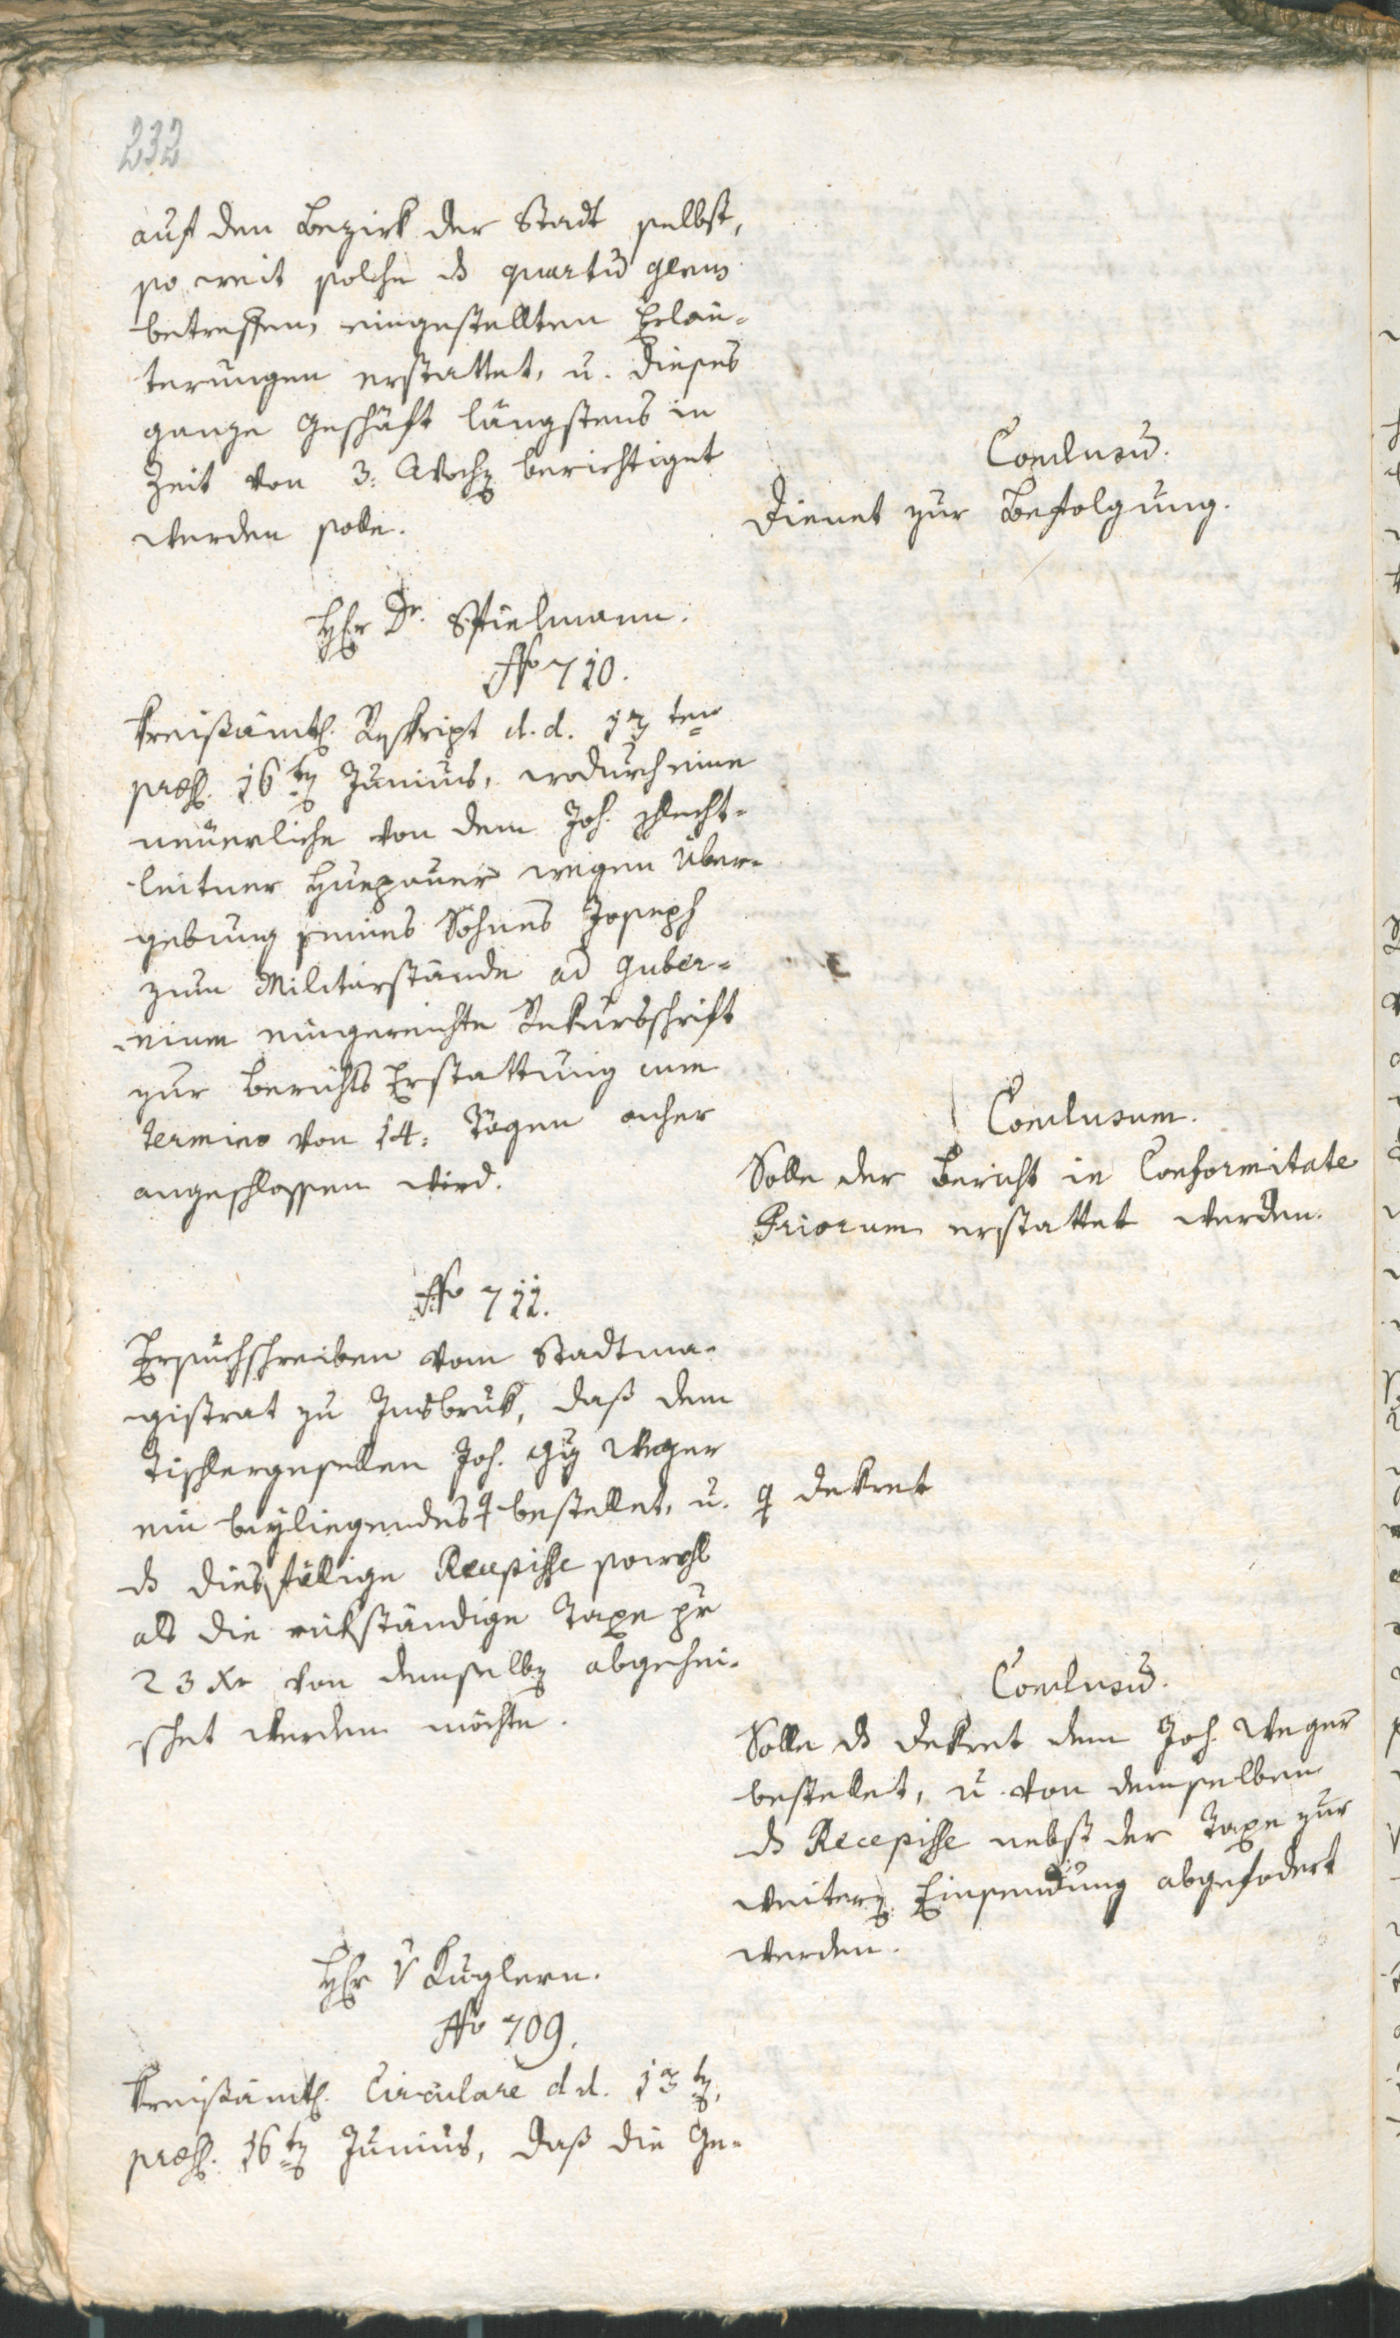 232
auf den Bezirk der Stadt selbst,
so weit solche ds quartu glenz
betreffen, eingestellten Erläu-
terungen erstattet, u. dieses
ganze Geschäft längstens in
Zeit von 3. Wochen berichtiget
werden solle.
Conclusum.
Dienet zur Befolgung.
Hr Dr. Spielmann.
No 710.
Kreißämtl. Reskript d. d. 13ten
praes. 16ten Junius, wodurch eine
neuerliche von dem Joh. Schlecht-
leitner wegen Über-
gebung seines Sohnes Joseph
zum Militärstande ad Guber-
nium eingereichte Rekursschrift
zur Berichts Erstattung cum
termino von 14. Tägen anher
angeschlossen wird.
Conclusum.
Solle der Bericht in Conformitate
Priorum erstattet werden.
No 711.
Ersuchschreiben vom Stadtma-
gistrat zu Insbruk, daß dem
Tischlergesellen Joh. Weger
ein beyliegendes bestellet, u.
Dekret
ds diesfällige Recepisse sowohl
als die rükständige Taxe pr
23 Xr von demselben abgehei-
schet werden möchte.
Conclusum.
Solle ds Dekret dem Joh. Weger
bestellet, u. von demselben
ds Recepisse nebst der Taxe zur
weitern Einsendung abgefodert
werden.
Hr v Kuglern.
No 709.
Kreißämtl. Circulare d. d. 13ten,
praes. 16ten Junius, daß die Ge-